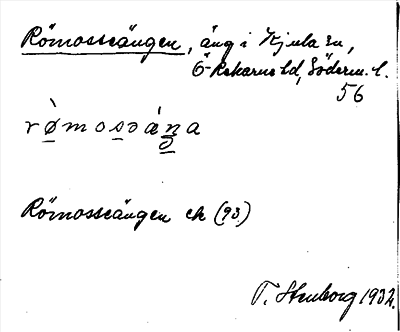 Römosseängen, äng i Kjula sn,
Ö-Rekarne hd, Söderm. l.
56
Römosseängen ek (93)
T. Stenborg 1932.